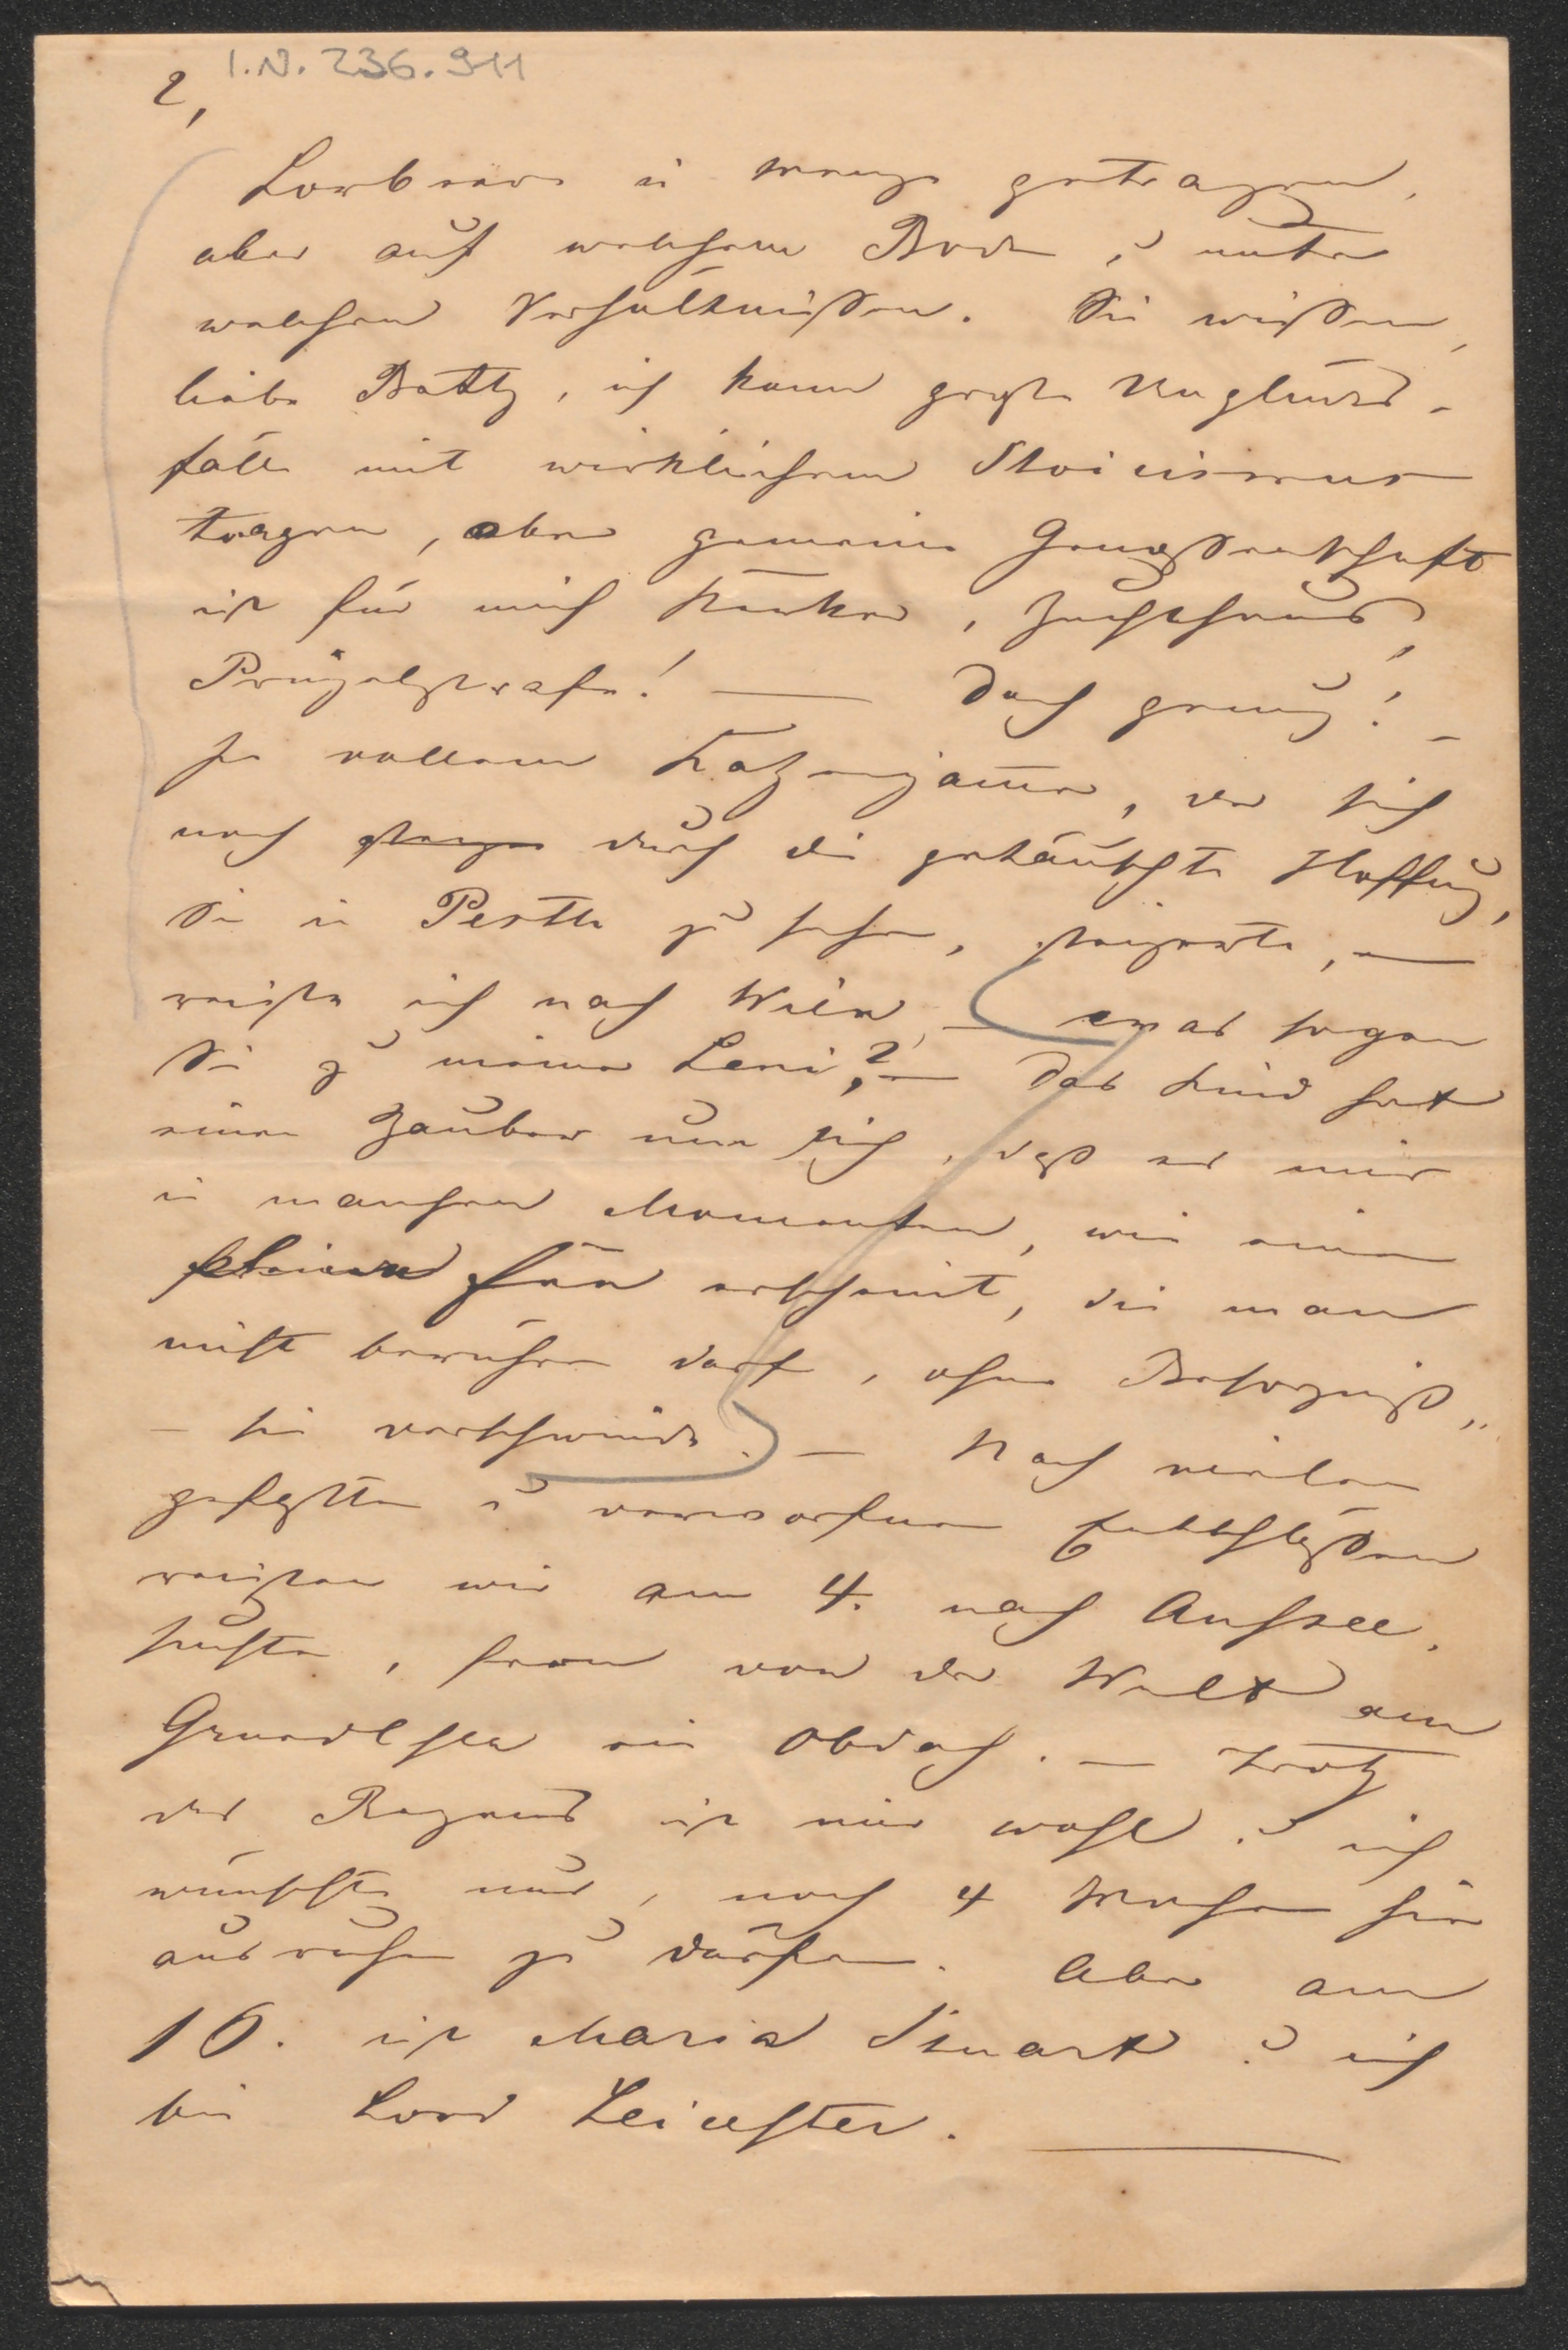 I.N. 236.911
2,
Lorbeere in Menge getragen,
aber auf welchem Boden u unter
welchen Verhältnißen. Sie wißen,
liebe Betty, ich kann große Unglücks-
fälle mit wirklichem Stoicismus
tragen, aber gemeine Genoßenschaft
ist für mich Kerker, Zuchthaus,
Prügelstrafe! — Doch genug! –
In vollem Katzenjamer, der sich
noch durch die getäuschte Hoffnung,
Sie in Pesth zu sehen, steigerte, —
reiste ich nach Wien – was sagen
Sie zu meiner Leni? — Das Kind hat
einen Zauber um sich, daß es mir
in manchen Momenten, wie eine
kleine Fee erscheint, die man
nicht berühren darf, ohne Besorgniß,
– sie verschwinde. — Nach vielen
gefaßten u verworfnen Entschlüßen
reisten wir am 4. nach Aussee,
suchten, fern von der Welt am
Grundlsee ein Obdach. — Trotz
des Regens ist mir wohl u ich
wünschte nur, noch 4 Wochen hier
ausruhen zu dürfen. Aber am
16. ist Maria Stuart u ich
bin Lord Leicester. —